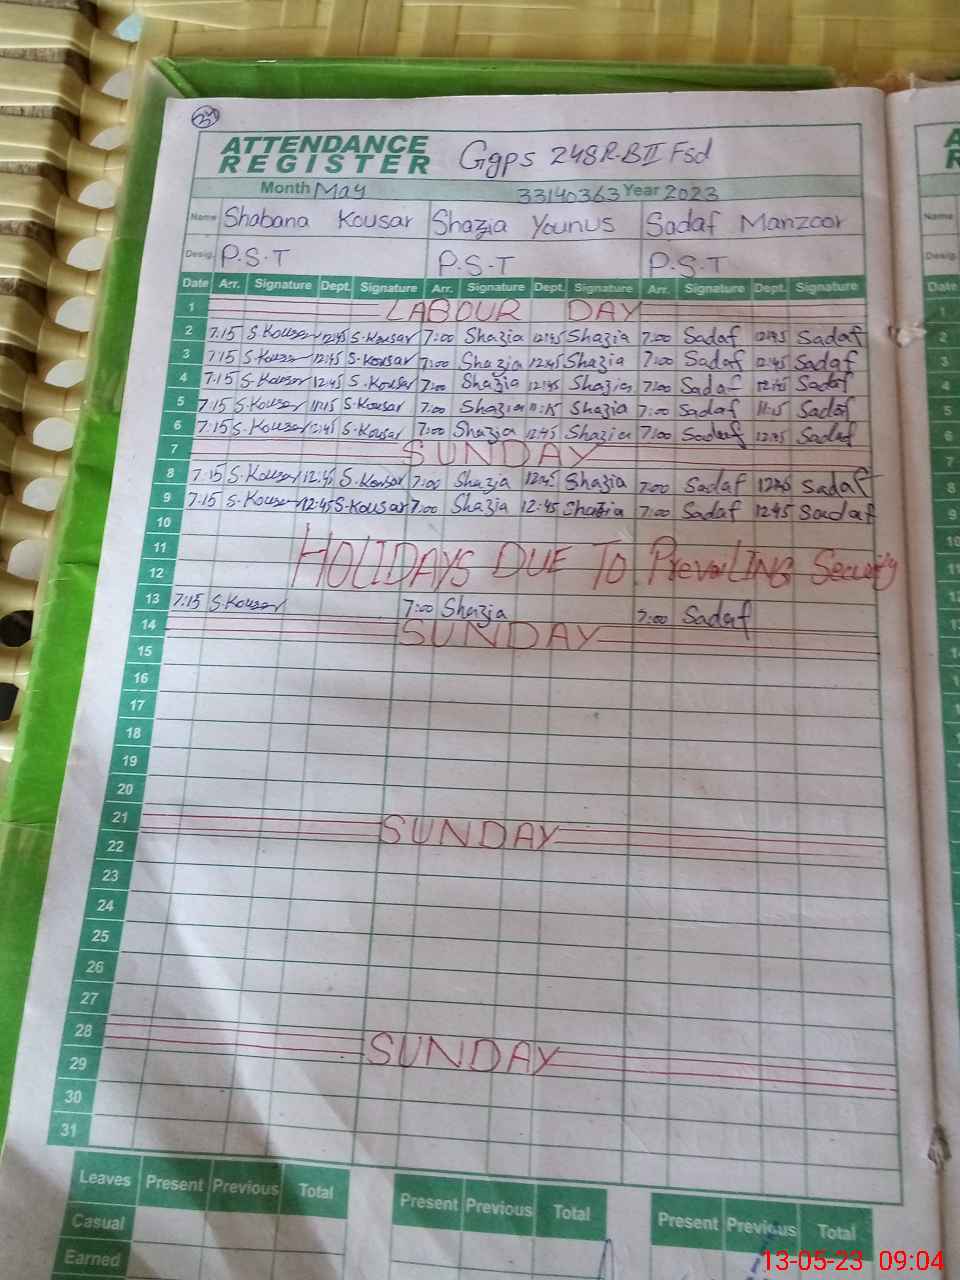 37
ATTENDANCE REGISTER Ggps 248 R-B II Fsd
Month May 33140363 Year 2023
Name Shabana Kousar Shazia Younus Sadaf Manzoor Name
Desig. P.S.T P.S.T P.S.T Desig.
Date Arr. Signature Dept. Signature Arr. Signature Dept. Signature Arr. Signature Dept. Signature Date
1 LABOUR DAY 1
2 7.15 S.Kousar 12:45 S.Kousar 7:00 Shazia 12:45 Shazia 7:00 Sadaf 12:45 Sadaf 2
3 7:15 S.Kousar 12:45 S.Kousar 7:00 Shazia 12:45 Shazia 7:00 Sadaf 12:45 Sadaf 3
4 7:15 S.Kousar 12:45 S.Kousar 7:00 Shazia 12:45 Shazia 7:00 Sadaf 12:45 Sadaf 4
5 7:15 S.Kousar 11:15 S.Kousar 7:00 Shazia 11:15 Shazia 7:00 Sadaf 11:15 Sadaf 5
6 7:15 S.Kousar 12:45 S.Kousar 7:00 Shazia 12:45 Shazia 7:00 Sadaf 12:45 Sadaf 6
7 SUNDAY 7
8 7:15 S.Kousar 12:45 S.Kousar 7:00 Shazia 12:45 Shazia 7:00 Sadaf 12:45 Sadaf 8
9 7.15 S.Kousar 12:45 S.Kousar 7:00 Shazia 12:45 Shazia 7:00 Sadaf 12:45 Sadaf 9
10 10
11 HOLIDAYS DUE TO PrevaiLING Security 11
12
13 7:15 S.Kousar 7:00 Shazia 7:00 Sadaf
14 SUNDAY
15
16
17
18
19
20
21 SUNDAY
22
23
24
25
26
27
28 SUNDAY
29
30
31
Leaves Present Previous Total Present Previous Total Present Previous Total
Casual
Earned
13-05-23 09:04